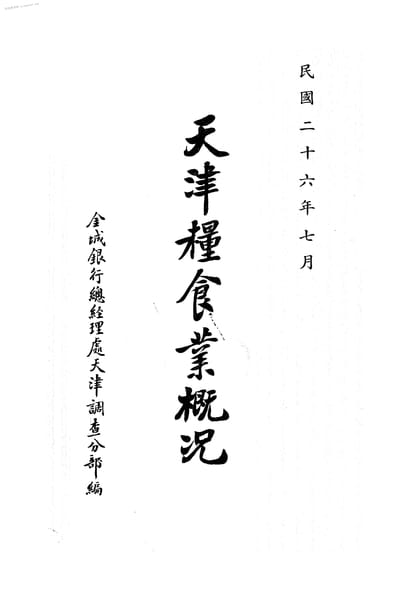 民國二十六年七月
天津糧食業概况
金城銀行總經理處天津調查分部編